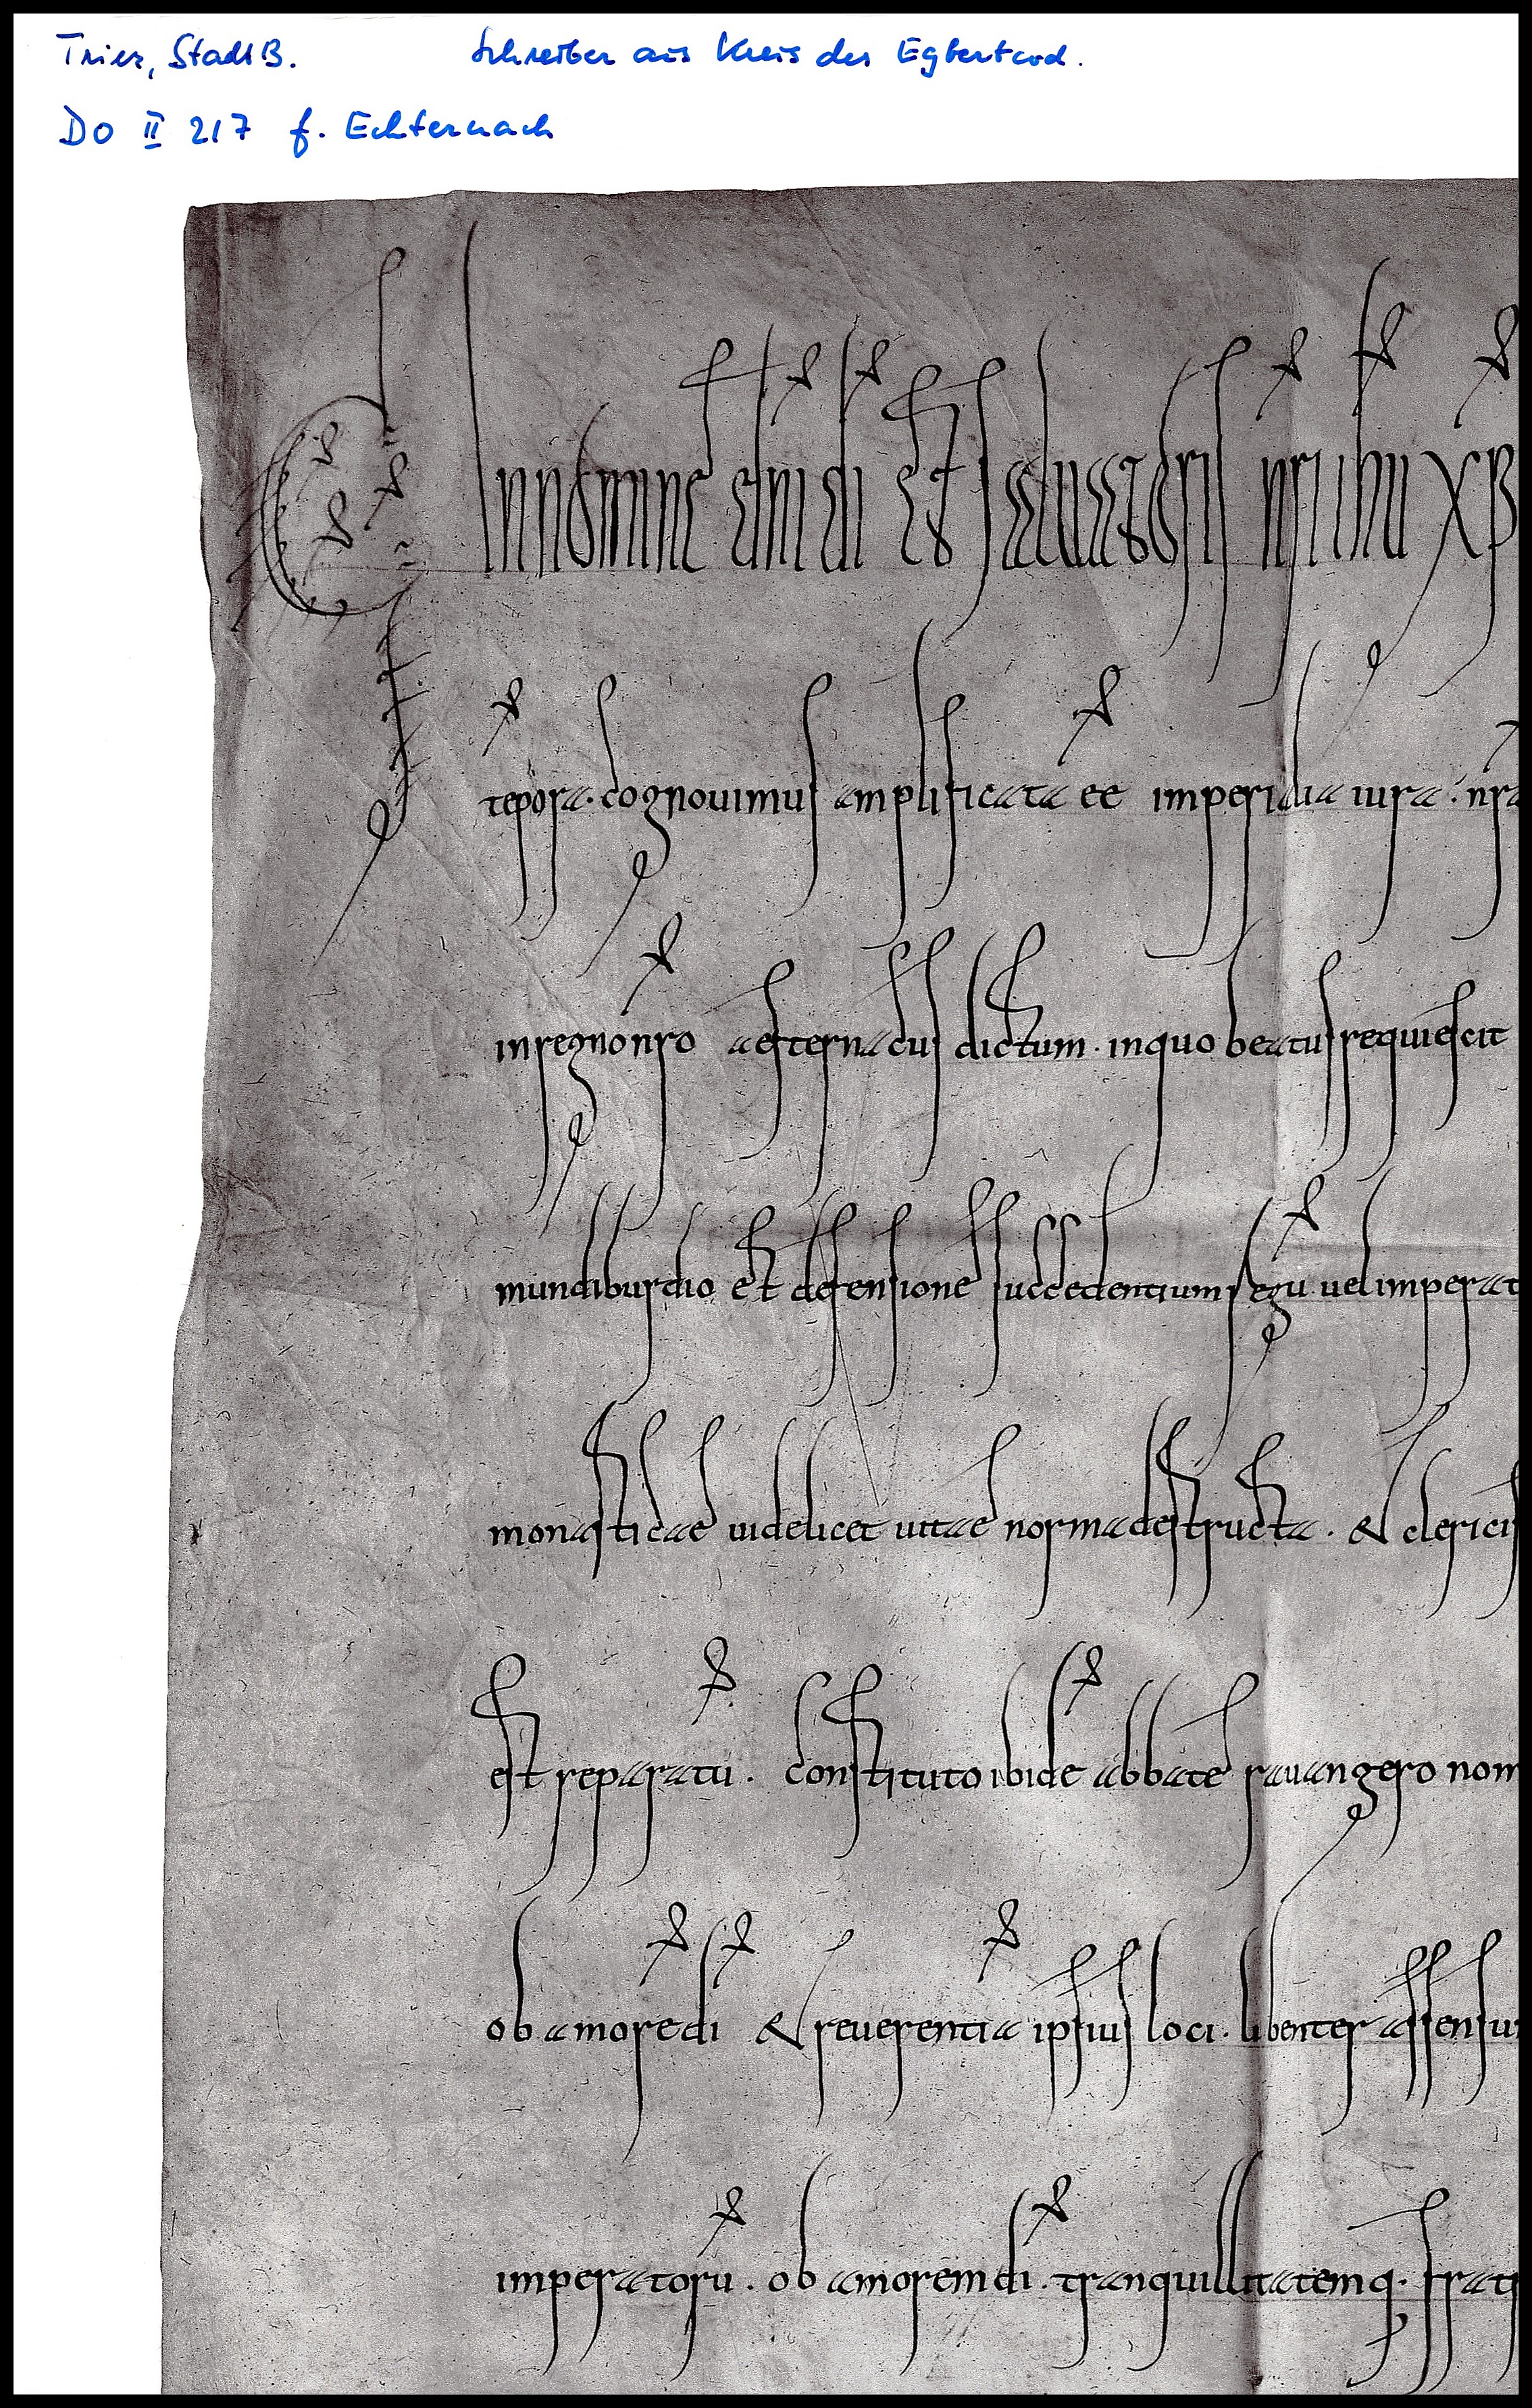 Trier, StadtB. Schreiber aus Kreis des Egbertcod.
DO II 217 f. Echternach
In nomine dni di et saluatoris nri ihu xp
tepora. cognouimus amplificata ee imperialia iura. nra
in regno nro aefternacus dictum. in quo beatus requiescit
mundiburdio et defensione succedentium regu uel imperat
monasticae uidelicet uitae norma destructa. & clerici
est reparatu. Constituto ibide abbate rauangero nom
ob amore di & reuerentia ipsius loci. libenter assensu
imperatoru. ob amorem di. tranquillitatemq. fratr